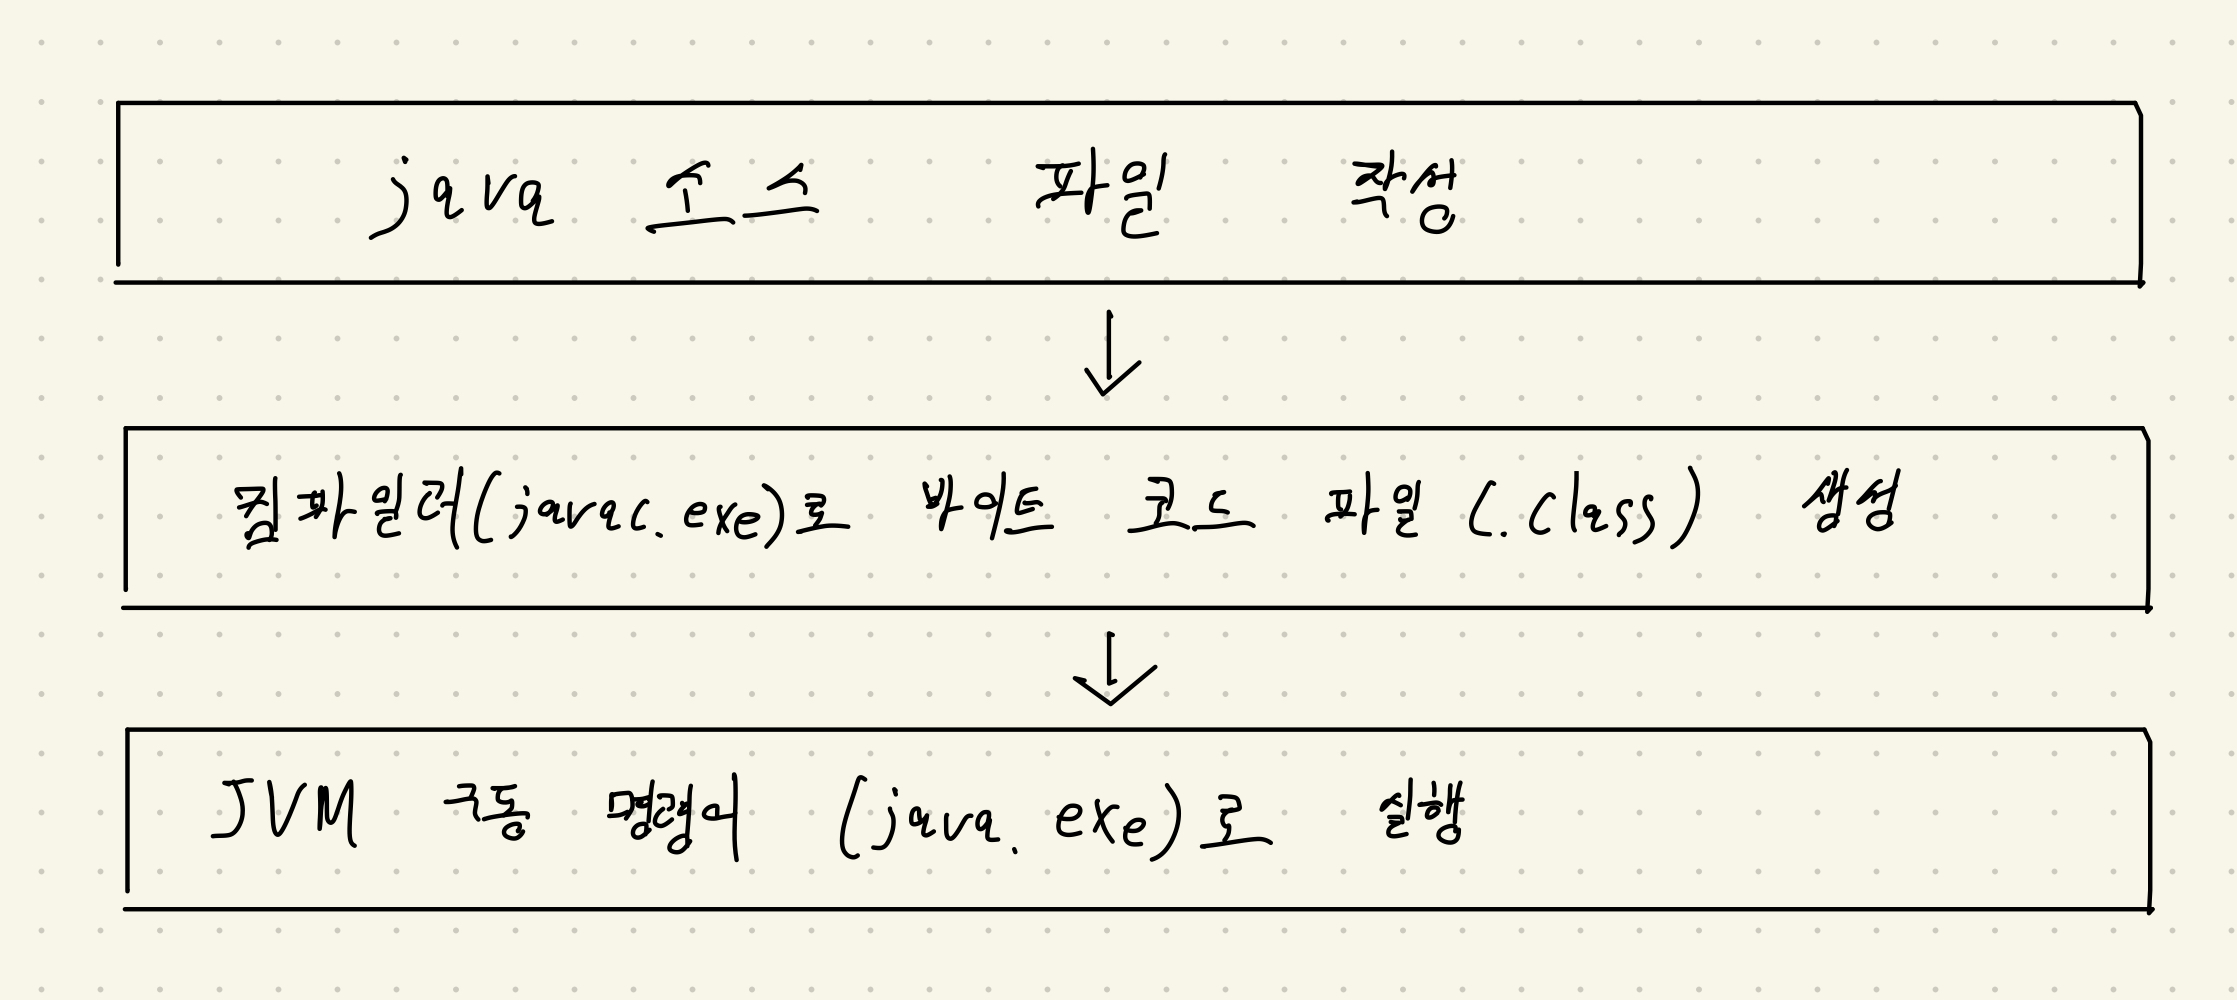 java 소스 파일 작성
컴파일러(javac.exe)로 바이트 코드 파일 (.class) 생성
JVM 구동 명령어 (java.exe)로 실행